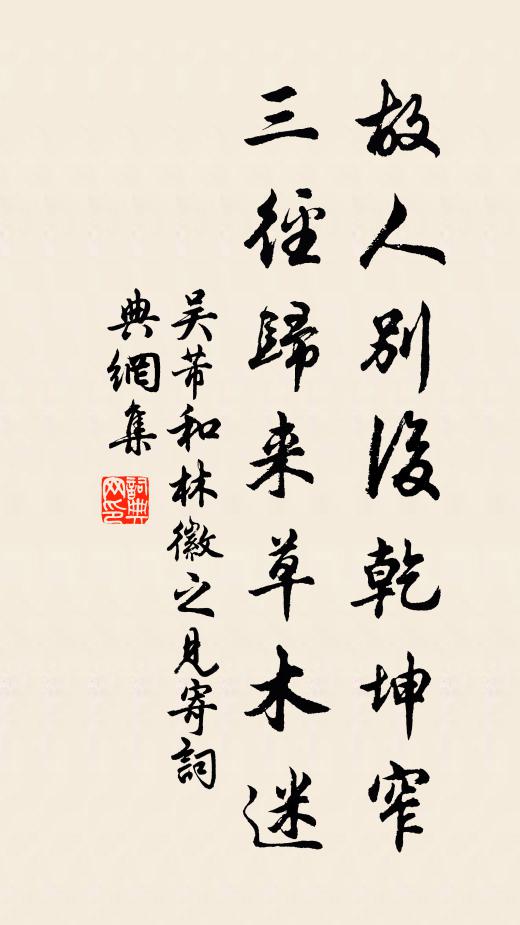 故人別後乾坤窄
三徑歸来草木迷
吴芾和林徽之見寄詞
典網集
詞典网印